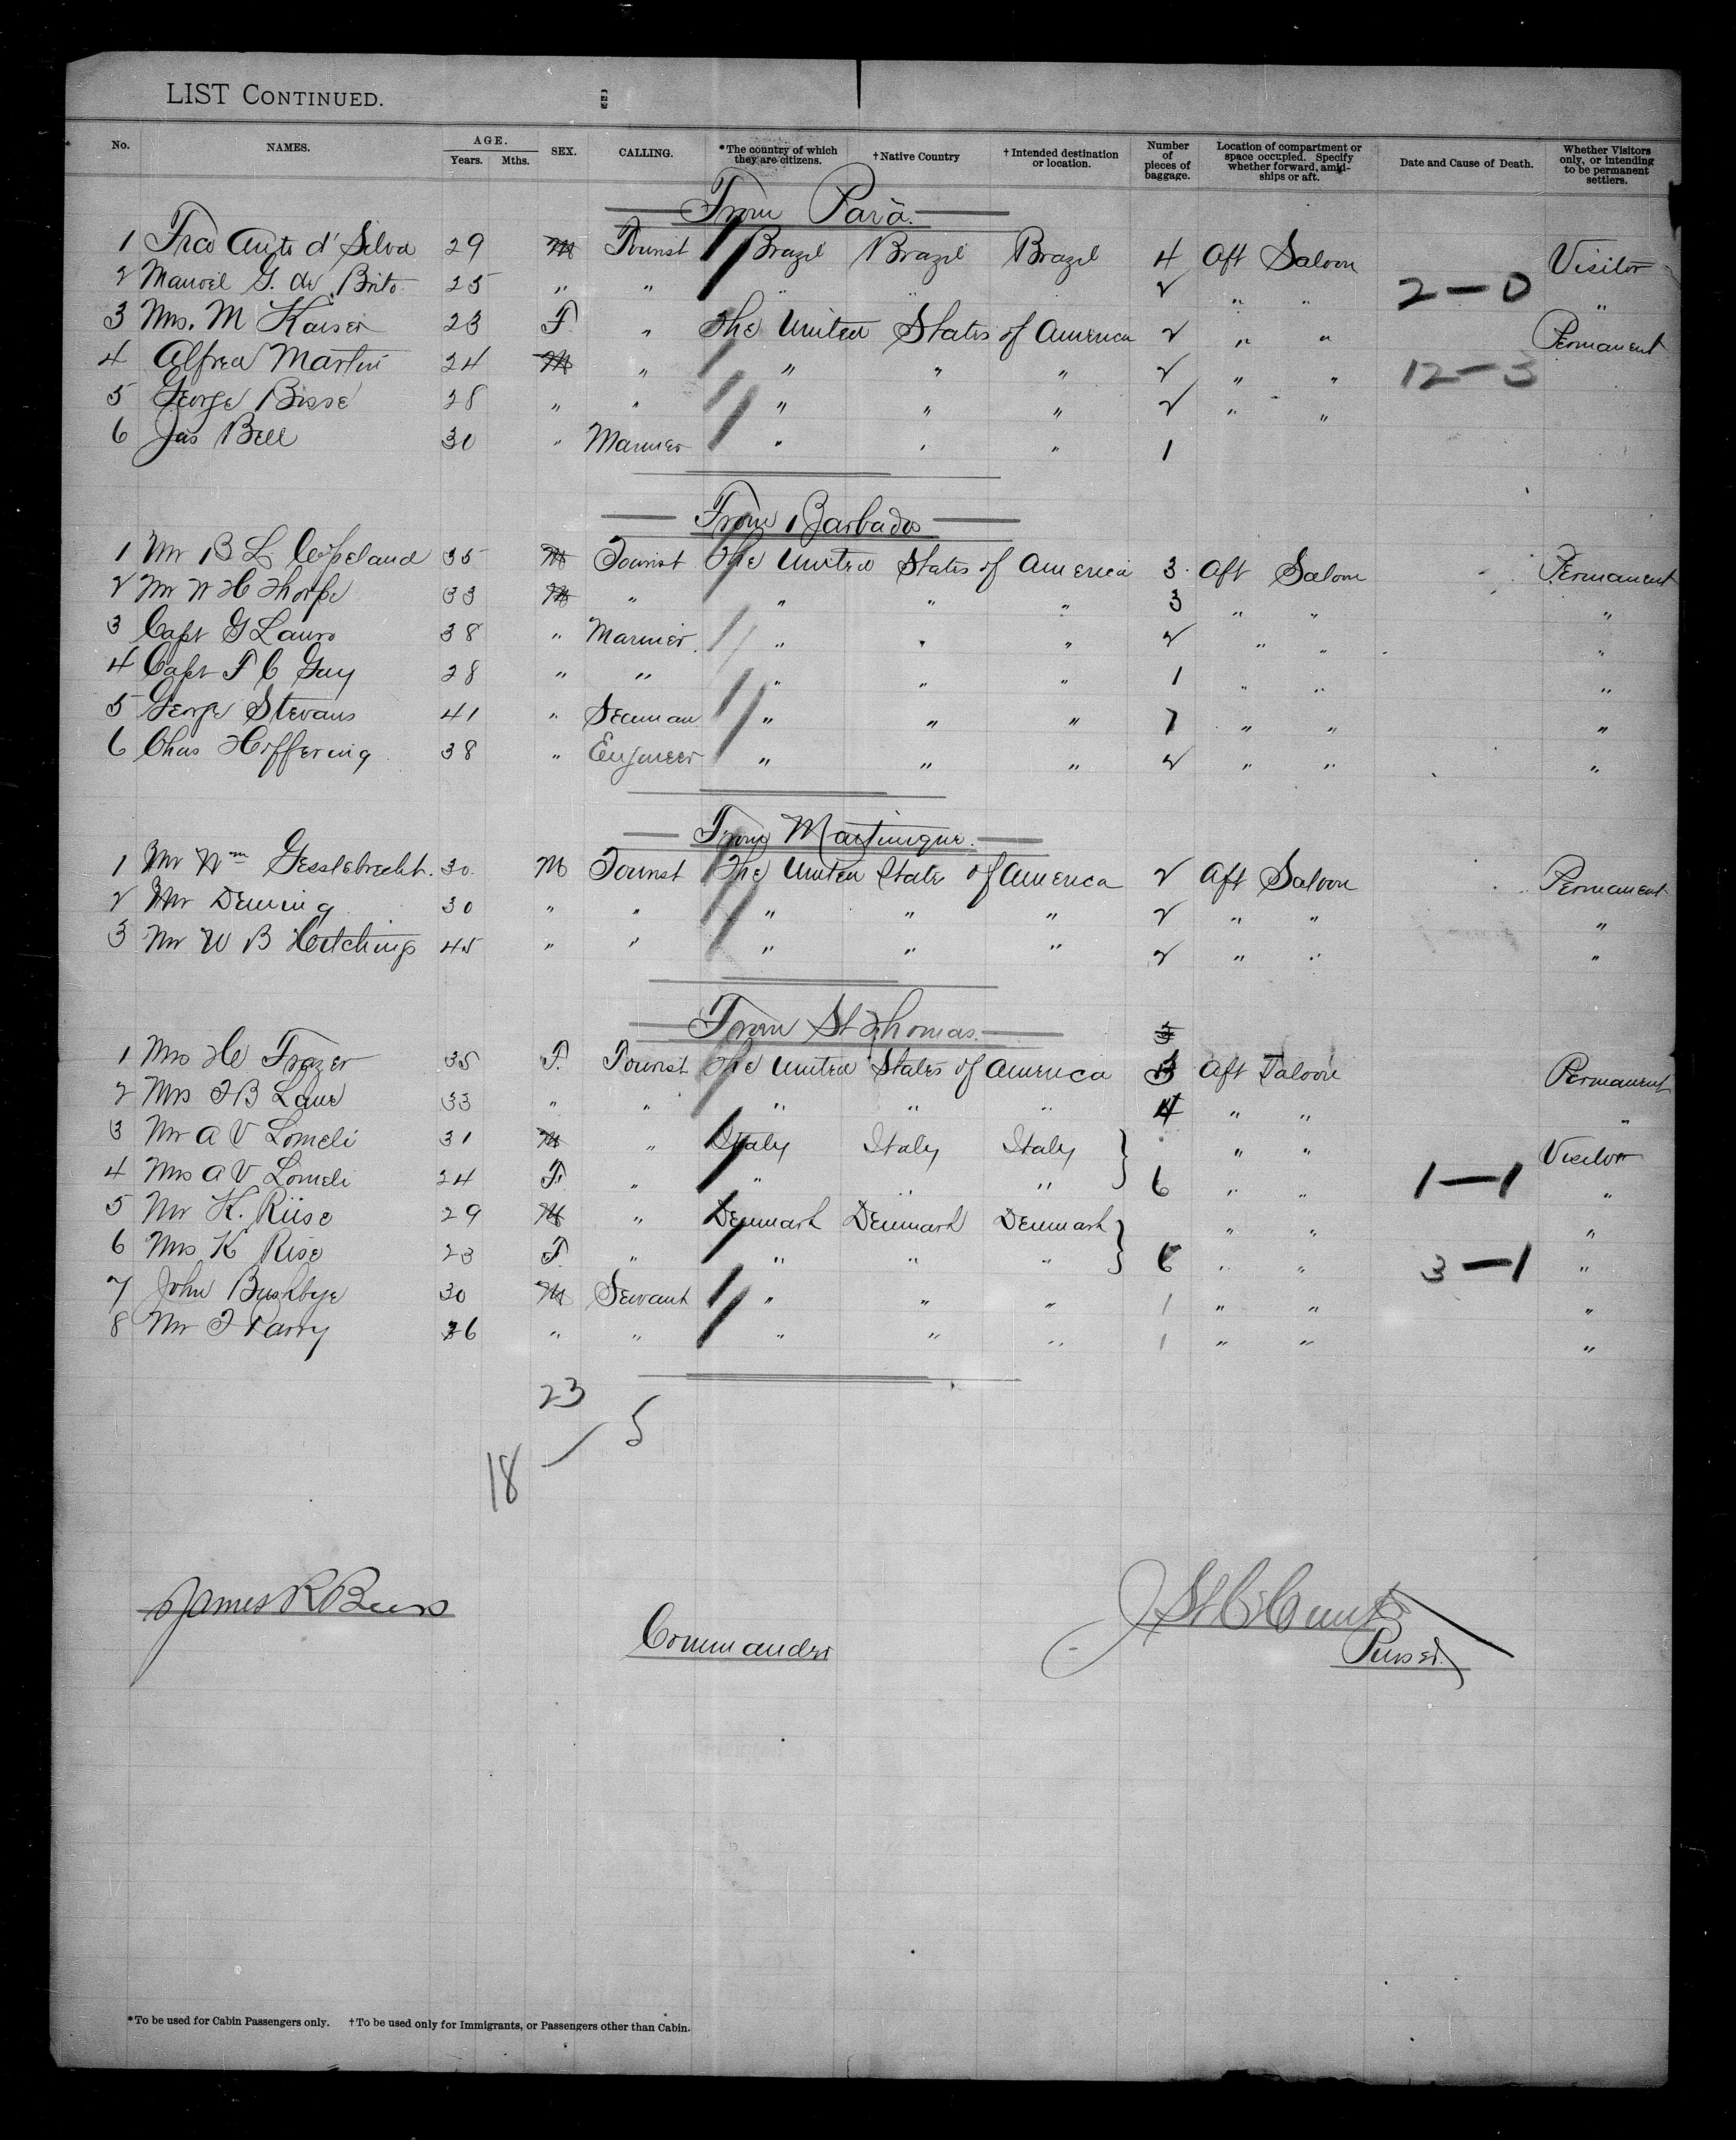 LIST CONTINUED.
No. NAMES. AGE. Years. Mths. SEX. CALLING. *The country of which they are citizens. †Native Country †Intended destination or location. Number of pieces of baggage. Location of compartment or space occupied. Specify whether forward, amidships or aft. Date and Cause of Death. Whether Visitors only, or intending to be permanent settlers.
From Parà.
1 Frco Anto d' Silva 29 M Tourist Brazil Brazil Brazil 4 Aft Saloon Visitor
2 Manoel G. de Brito 25 " " " " " 2 " " 2-0 "
3 Mrs. M Kaiser 23 F. " The United States of America 2 " " Permanent
4 Alfred Martin 24 M " " " " 2 " " 12-3
5 George Bisse 28 " " " " " 2 " "
6 Jas Bell 30 " Mariner " " " 1
From Barbados
1 Mr B L Copeland 35 M Tourist The United States of America 3 Aft Saloon Permanent
2 Mr W H Thorpe 33 M " " " " 3 " " "
3 Capt G Lauro 38 " Mariner " " " 2 " " "
4 Capt F C Gay 28 " " " " " 1 " " "
5 George Stevans 41 " Seaman " " " 1 " " "
6 Chas Hoffering 38 " Engineer " " " 2 " " "
From Martinique.
1 Mr Wm Gesslebrecht. 30. M Tourist The United States of America 2 Aft Saloon Permanent
2 Mr Deming 30 " " " " " 2 " " "
3 Mr W B Hutchings 45 " " " " " 2 " " "
From St Thomas. 3
1 Mrs H Frazer 35 F. Tourist The United States of America 3 Aft Saloon Permanent
2 Mrs J B Lane 33 " " " " " 4 " " "
3 Mr A V Lomeli 31 M " Italy Italy Italy " " Visitor
4 Mrs A V Lomeli 24 F. " " " " 6 " " 1-1 "
5 Mr K. Riise 29 M " Denmark Denmark Denmark " " "
6 Mrs K Rise 23 F. " " " " 6 " " 3-1 "
7 John Bushbye 30 M Servant " " " 1 " " "
8 Mr J Parry 26 " " " " " 1 " " "
23
18 - 5
James R Beers
Commander
Purser.
*To be used for Cabin Passengers only. †To be used only for Immigrants, or Passengers other than Cabin.